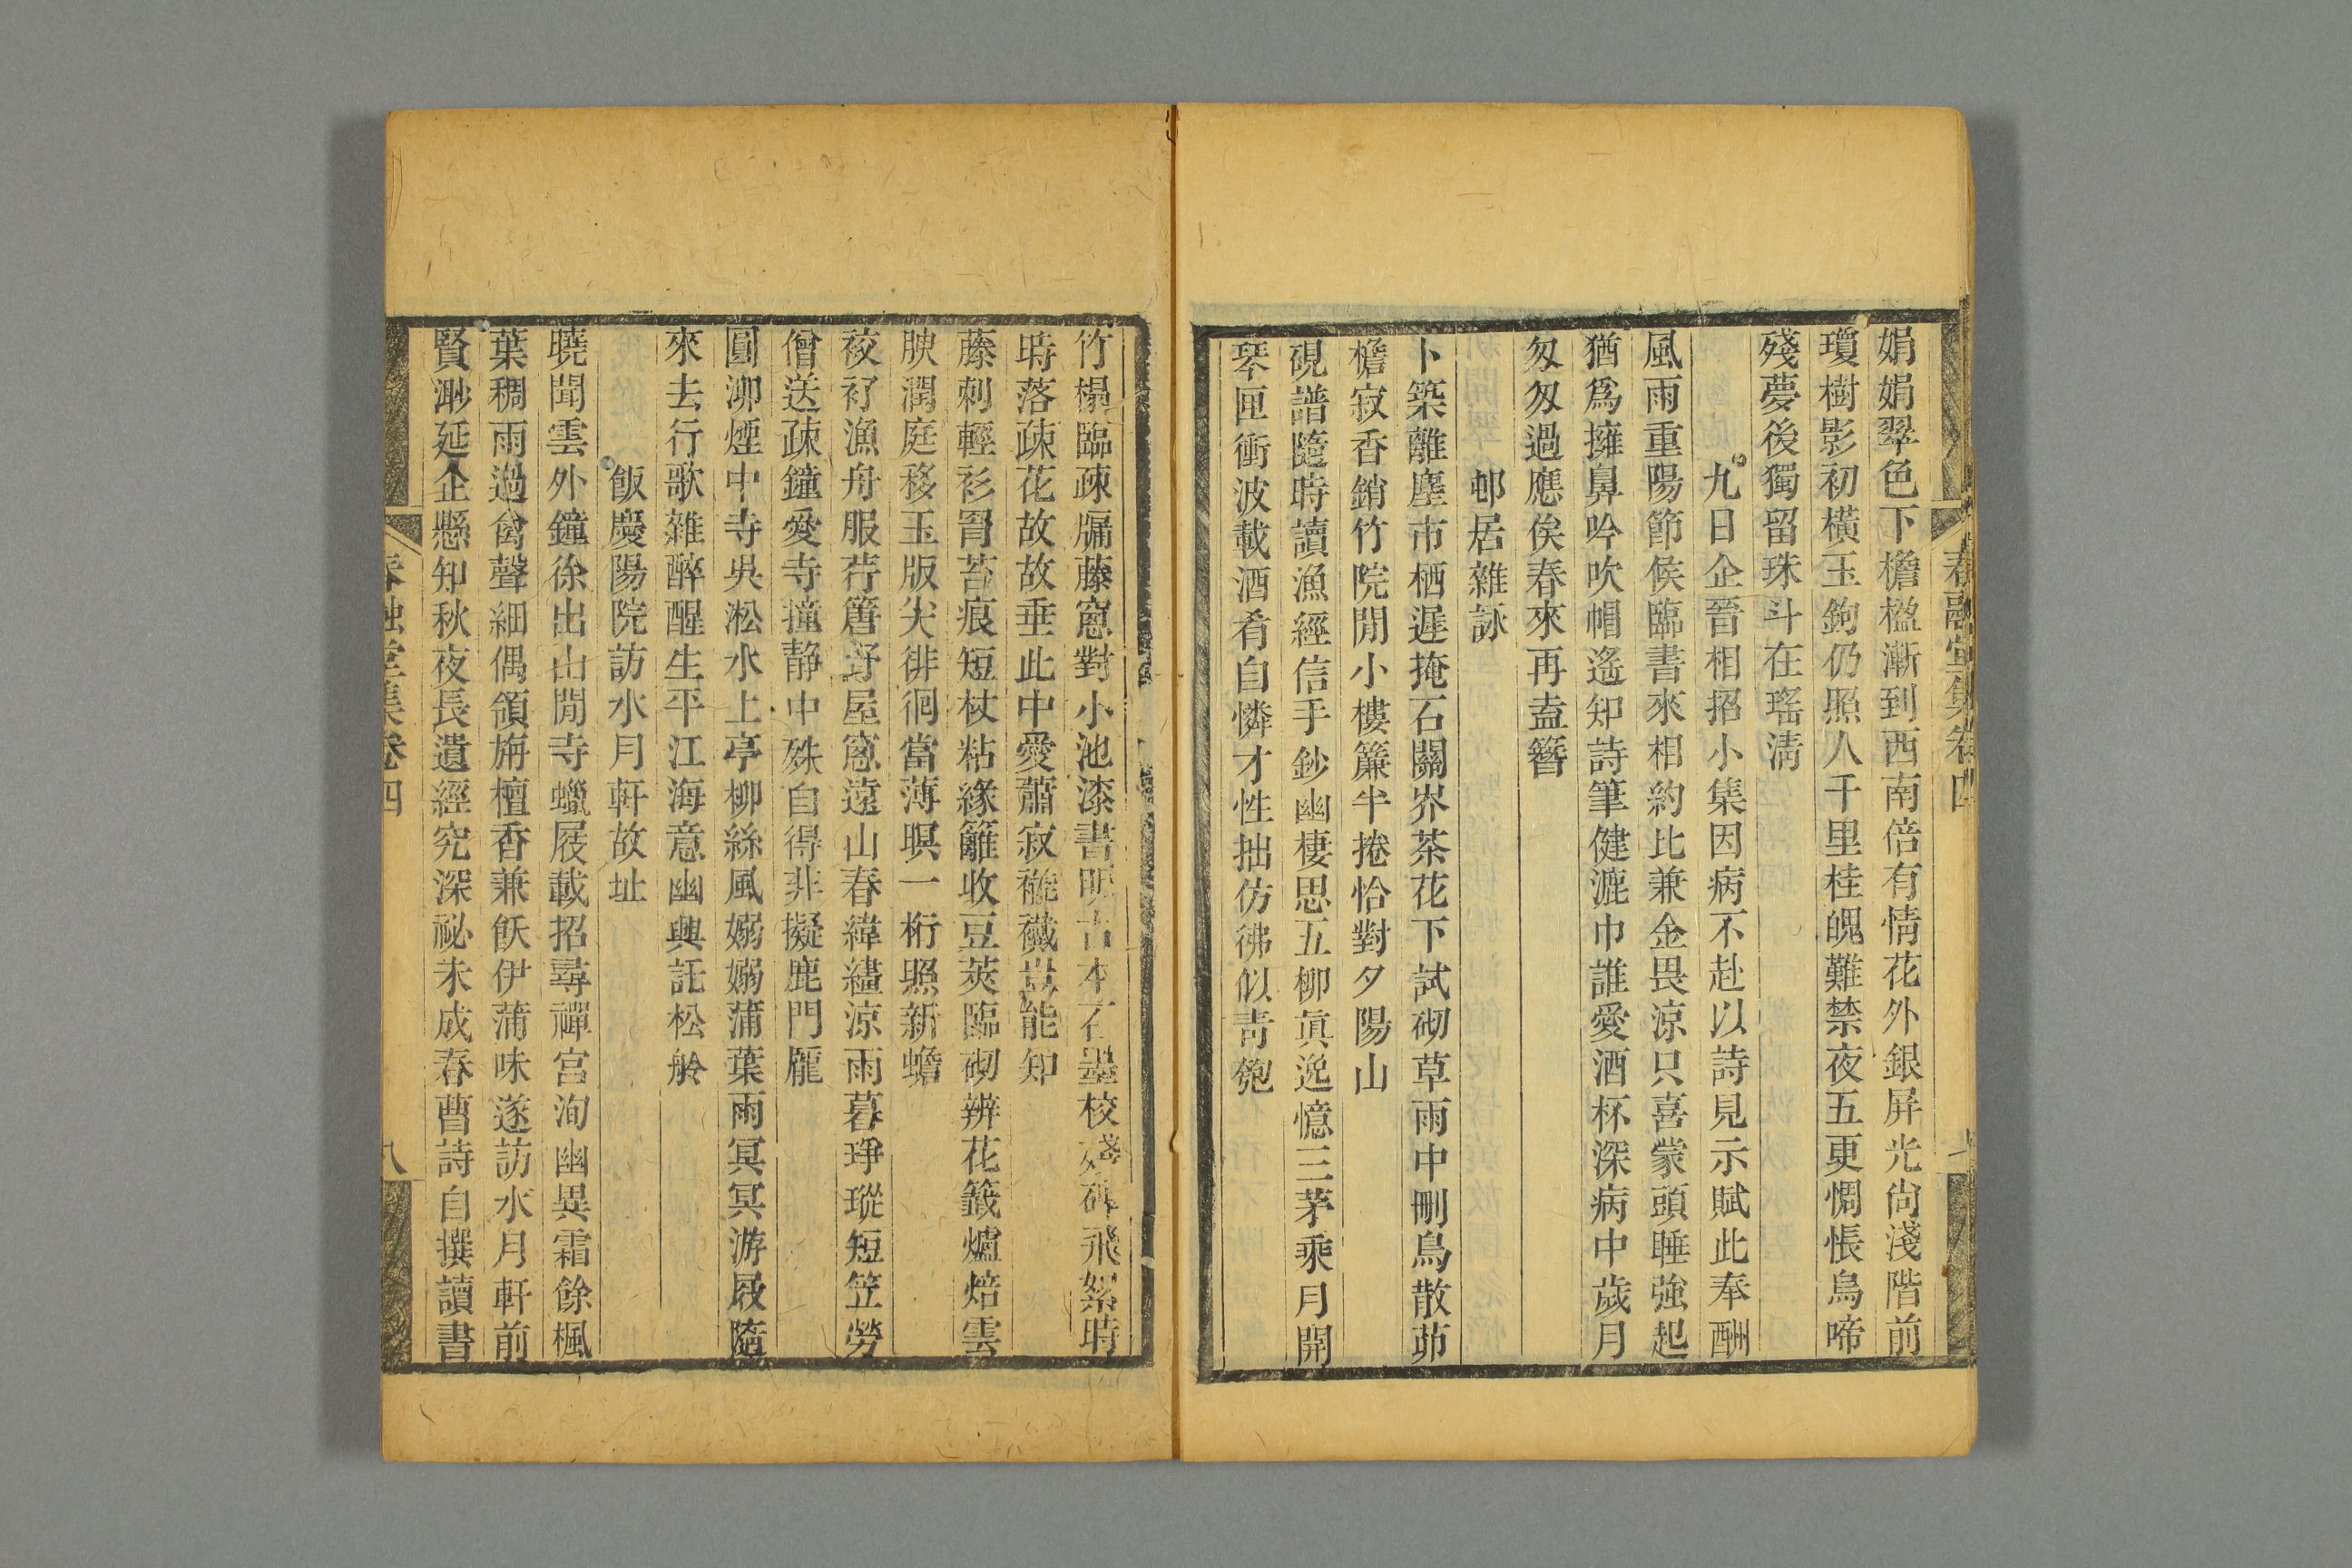 春融堂集卷四
娟娟翠色下檐楹漸到西南倍有情花外銀屏光尙淺階前
瓊樹影初橫玉鉤仍照人千里桂魄難禁夜五更惆悵烏啼
殘夢後獨留珠斗在瑤淸
九日企晉相招小集因病不赴以詩見示賦此奉酬
風雨重陽節候臨書來相約比兼金畏涼只喜蒙頭睡強起
猶爲擁鼻吟吹帽遙知詩筆健漉巾誰愛酒杯深病中歲月
匆匆過應俟春來再盍簪
邨居雜詠
卜築離塵市栖遲掩石關岕茶花下試砌草雨中刪鳥散茆
檐寂香銷竹院閒小樓簾半捲恰對夕陽山
硯譜隨時讀漁經信手鈔幽棲思五柳眞逸憶三茅乘月開
琴匣衝波載酒肴自憐才性拙仿彿似靑匏
竹榻臨疎牖藤窻對小池漆書明古本石墨校殘碑飛絮時
時落疎花故故垂此中愛蕭寂褦襶豈能知
藤刺輕衫罥苔痕短杖粘緣籬收豆莢臨砌辨花籤爐焙雲
腴潤庭移玉版尖徘徊當薄暝一桁照新蟾
衱衧漁舟服荇簷野屋窻遠山春緯繣涼雨暮琤瑽短笠勞
僧送疎鐘愛寺撞靜中殊自得非擬鹿門龐
圓泖煙中寺吳淞水上亭柳絲風嫋嫋蒲葉雨冥冥游屐隨
來去行歌雜醉醒生平江海意幽興託松舲
飯慶陽院訪水月軒故址
曉聞雲外鐘徐出山閒寺蠟屐載招尋禪宮洵幽異霜餘楓
葉稠雨過禽聲細偶領旃檀香兼飫伊蒲味遂訪水月軒前
賢渺延企懸知秋夜長遺經究深祕未成春曹詩自撰讀書
春融堂集卷四
八